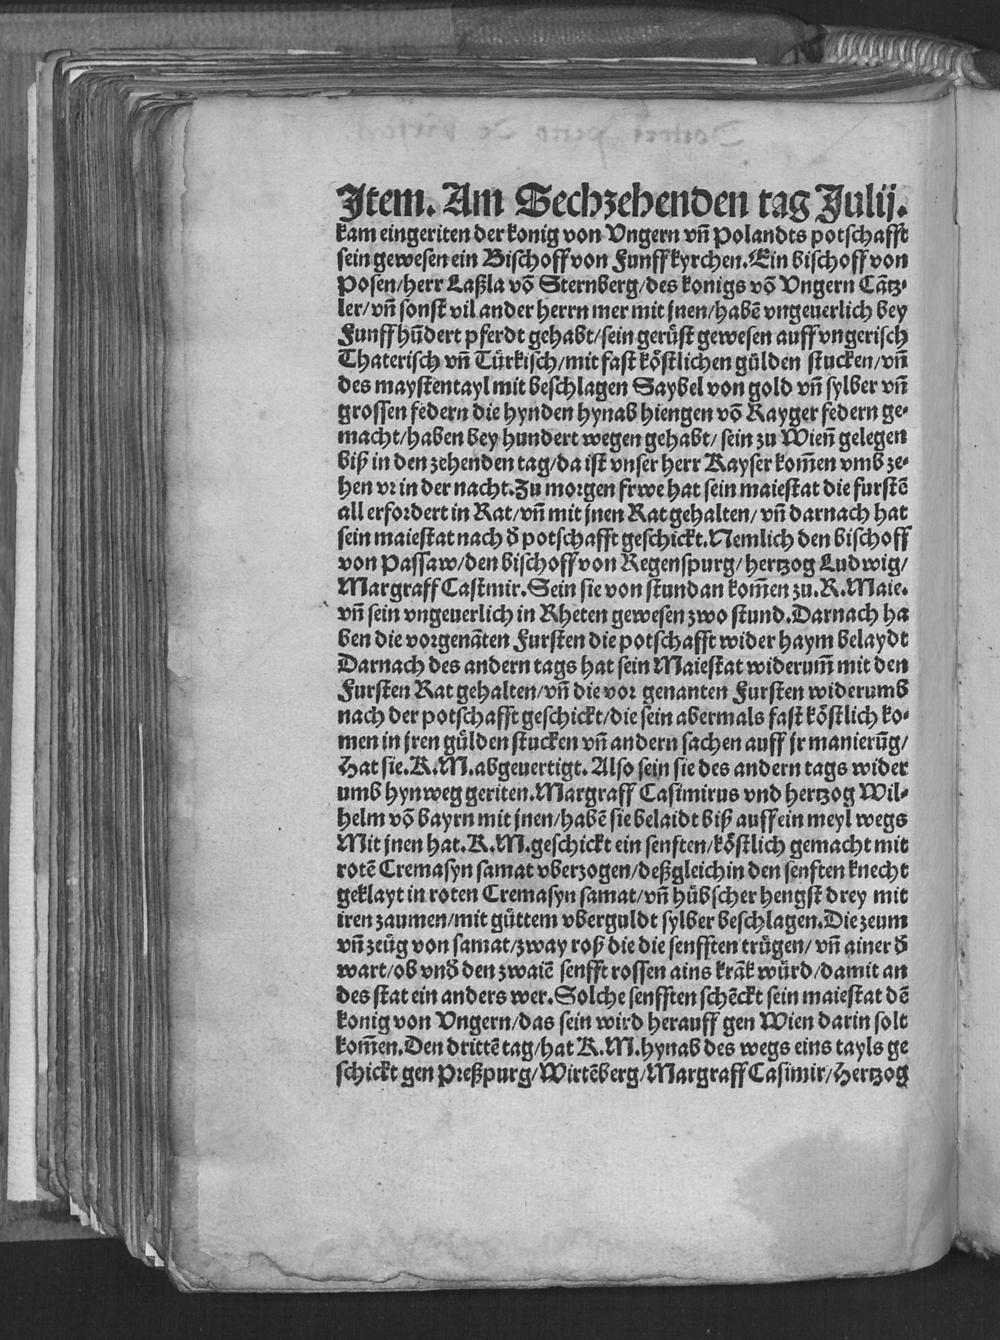 Jtem. Am Sechzehenden tag Julij.
kam eingeriten der konig von Vngern vñ Polandts potschafft
sein gewesen ein Bischoff von Funffkyrchen. Ein bischoff von
Posen/herr Laßla võ Sternberg/des konigs võ Vngern Cãtz-
ler/vñ sonst vil ander herrn mer mit jnen/habẽ vngeuerlich bey
Funffhũdert pferdt gehabt/sein gerüst gewesen auff vngerisch
Thaterisch vñ Türkisch/mit fast köstlichen gülden stucken/vñ
des maystentayl mit beschlagen Saybel von gold vñ sylber vñ
grossen federn die hynden hynab hiengen võ Rayger federn ge-
macht/haben bey hundert wegen gehabt/ sein zu Wieñ gelegen
biß in den zehenden tag/da ist vnser herr Kayser kom̃en vmb ze-
hen vr in der nacht. Zu morgen frwe hat sein maiestat die furstẽ
all erfordert in Rat/vñ mit jnen Rat gehalten/ vñ darnach hat
sein maiestat nach d̃ potschafft geschickt. Nemlich den bischoff
von Passaw/den bischoff von Regenspurg/ hertzog Ludwig/
Margraff Castmir. Sein sie von stundan kom̃en zu. K. Maie.
vñ sein vngeuerlich in Rheten gewesen zwo stund. Darnach ha
ben die vorgenãten Fursten die potschafft wider haym belaydt
Darnach des andern tags hat sein Maiestat widerum̃ mit den
Fursten Rat gehalten/vñ die vor genanten Fursten widerumb
nach der potschafft geschickt/die sein abermals fast köstlich ko-
men in jren gülden stucken vñ andern sachen auff jr manierũg/
Hat sie. K. M. abgeuertigt. Also sein sie des andern tags wider
umb hynweg geriten. Margraff Casimirus vnd hertzog Wil-
helm võ bayrn mit jnen/habẽ sie belaidt biß auff ein meyl wegs
Mit jnen hat. K. M. geschickt ein senften/köstlich gemacht mit
rotẽ Cremasyn samat vberzogen/deßgleich in den senften knecht
geklayt in roten Cremasyn samat/vñ hübscher hengst drey mit
iren zaumen/mit güttem vberguldt sylber beschlagen. Die zeum
vñ zeüg von samat/zway roß die die senfften trügen/ vñ ainer d̃
wart/ob vnd̃ den zwaiẽ senfft rossen ains krãk würd/damit an
des stat ein anders wer. Solche senfften schẽckt sein maiestat dẽ
konig von Vngern/das sein wird herauff gen Wien darin solt
kom̃en. Den drittẽ tag/hat K. M. hynab des wegs eins tayls ge
schickt gen Preßpurg/Wirtẽberg/Margraff Casimir/Hertzog